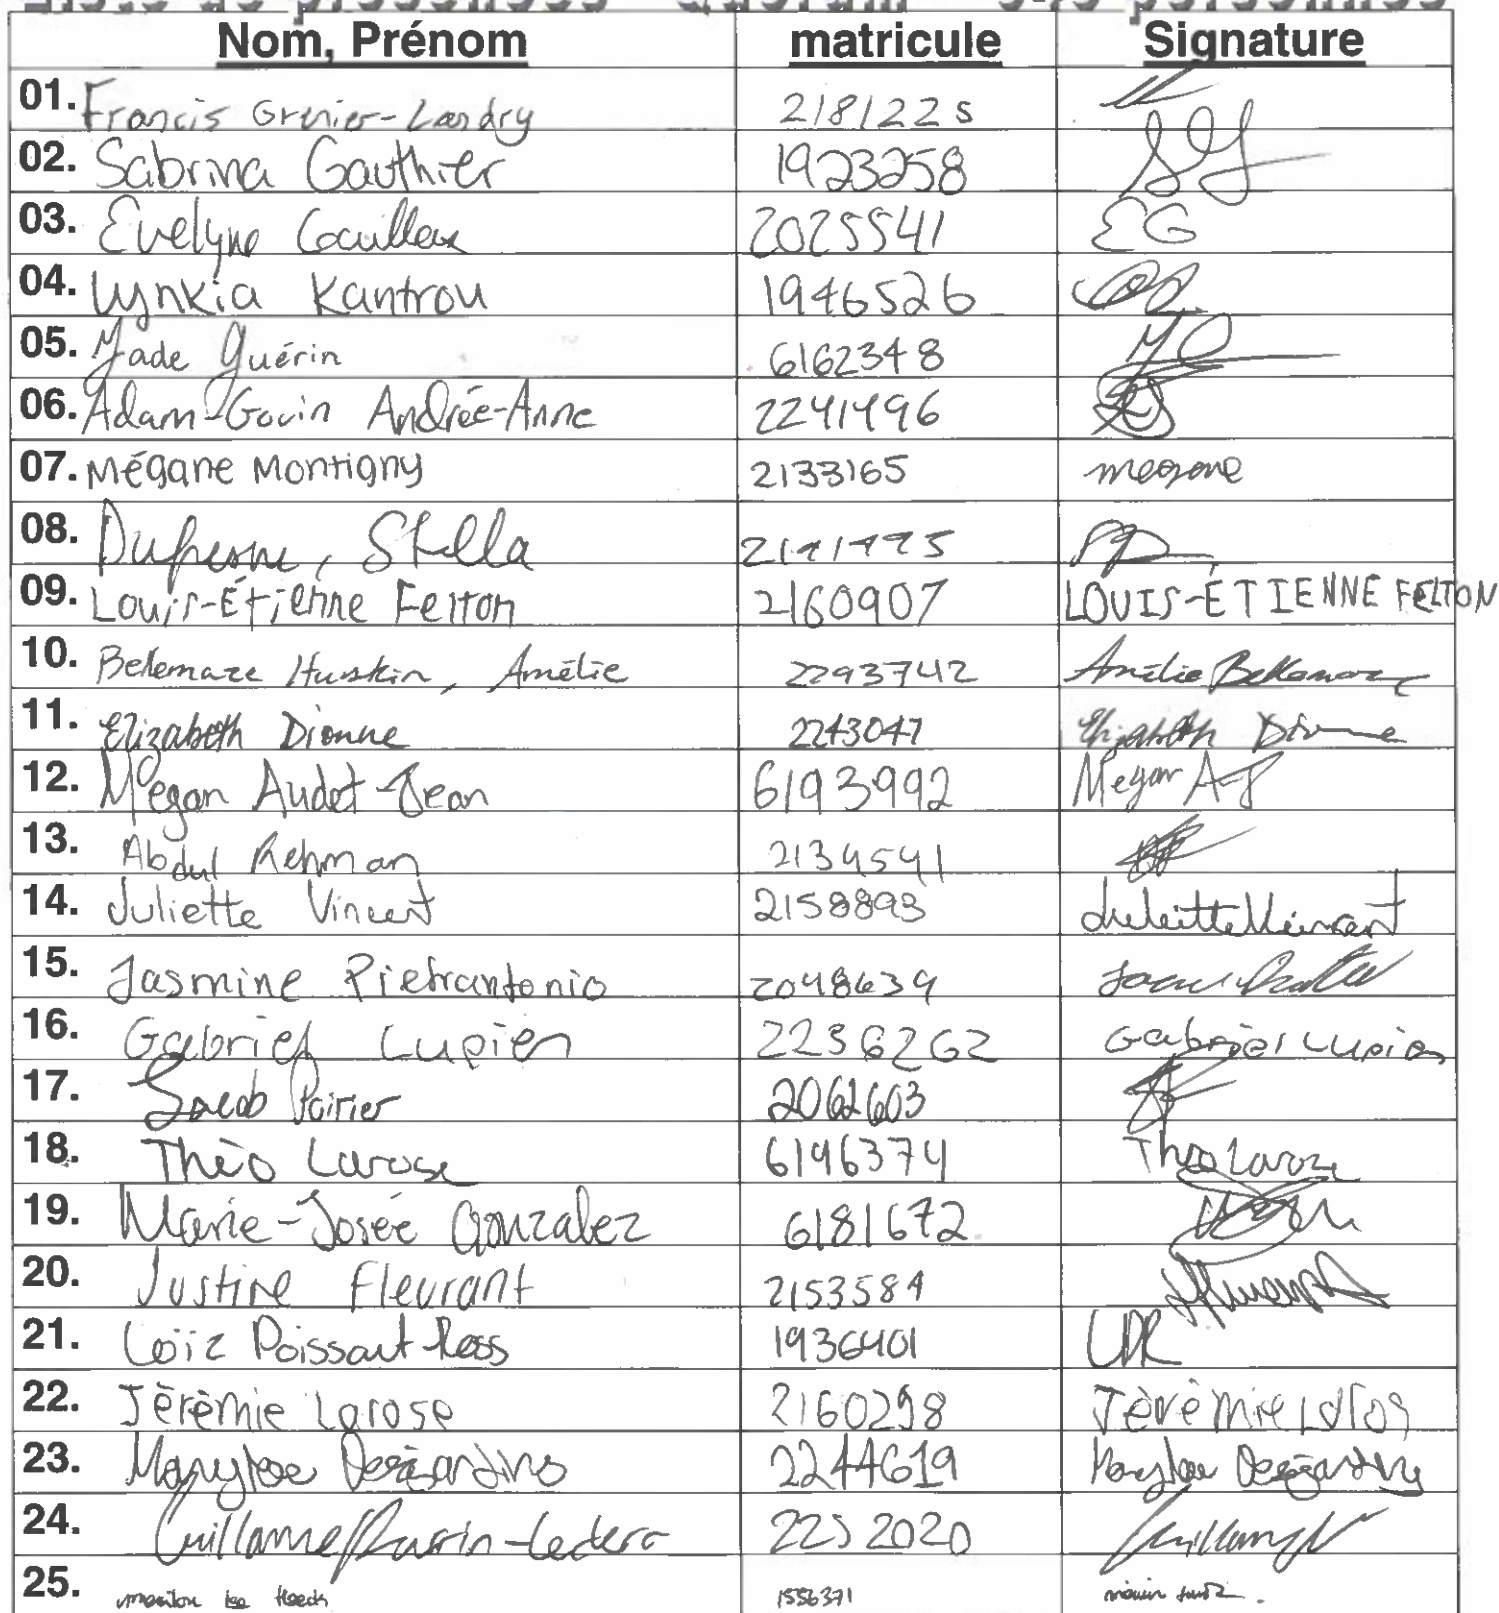 Liste de présences Quorum personnes
Nom, Prénom matricule Signature
01. Francis Grenier-Landry 2181225
02. Sabrina Gauthier 1923258 SG
03. Evelyne 2025541 EG
04. Lynkia Kantrou 1946526
05. Jade Guérin 6162348
06. Adam-Govin Andrée-Anne 2241496
07. Mégane Montigny 2133165 megane
08. Dufresne, Stella
09. Louis-Étienne Felton 2160907 LOUIS-ÉTIENNE FELTON
10. Bellemare Huskin, Amélie 2293742 Amélie Bellemare
11. Elizabeth Dionne 2243047 Elizabeth Dionne
12. Mégan Audet-Jean 6193992 Mégan A-J
13. Abdul Rehman 2134541
14. Juliette Vincent 2158893 Juliette Vincent
15. Jasmine Pietrantonio 2048639
16. Gabriel Lupien 2236262 Gabriel Lupien
17. Jacob Poirier 2061603
18. Thèo Larose 6196374 Théo Larose
19. Marie-Josée Gonzalez 6181672
20. Justine Fleurant 2153584
21. Loïz Poissant-Ross 1936401 LPR
22. Jèrèmie Larose 2160298 Jèrèmie Laros
23. Marylee Desjardins 2244619 Marylee Desjardins
24. Guillaume -Leclerc 2252020
25. 1556371